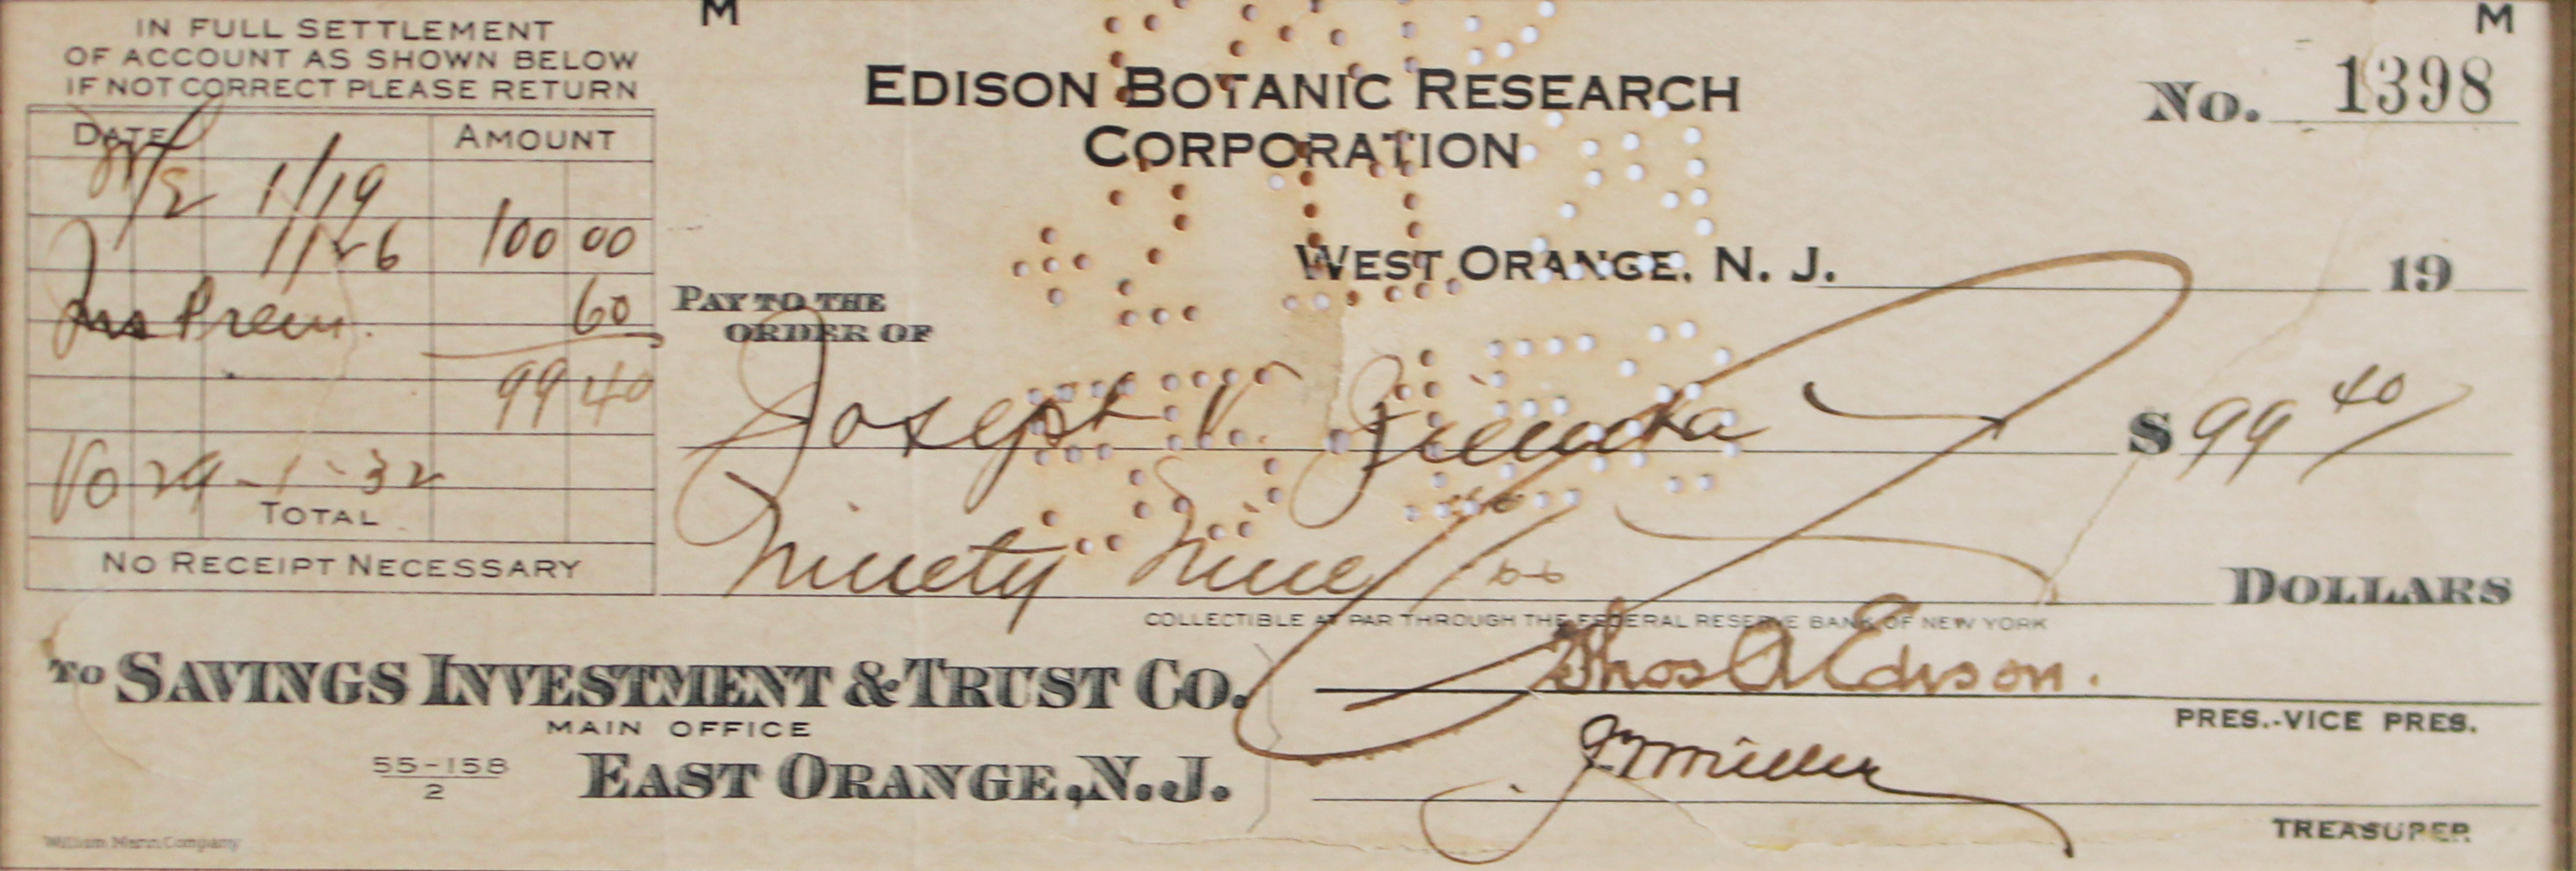 M
M
IN FULL SETTLEMENT
OF ACCOUNT AS SHOWN BELOW
IF NOT CORRECT PLEASE RETURN
DATE AMOUNT
1/19
1/26 100 00
Ins Prem. 60
99 40
Vo 29-1-32
TOTAL
NO RECEIPT NECESSARY
EDISON BOTANIC RESEARCH
CORPORATION
No. 1398
WEST ORANGE, N. J. 19
PAY TO THE
ORDER OF
Joseph V.
$ 99 40
Ninety Nine
DOLLARS
COLLECTIBLE AT PAR THROUGH THE FEDERAL RESERVE BANK OF NEW YORK
TO SAVINGS INVESTMENT & TRUST CO.
MAIN OFFICE
55-158
2
EAST ORANGE, N. J.
Thos A Edison.
PRES.-VICE PRES.
Miller
TREASURER
William Mann Company